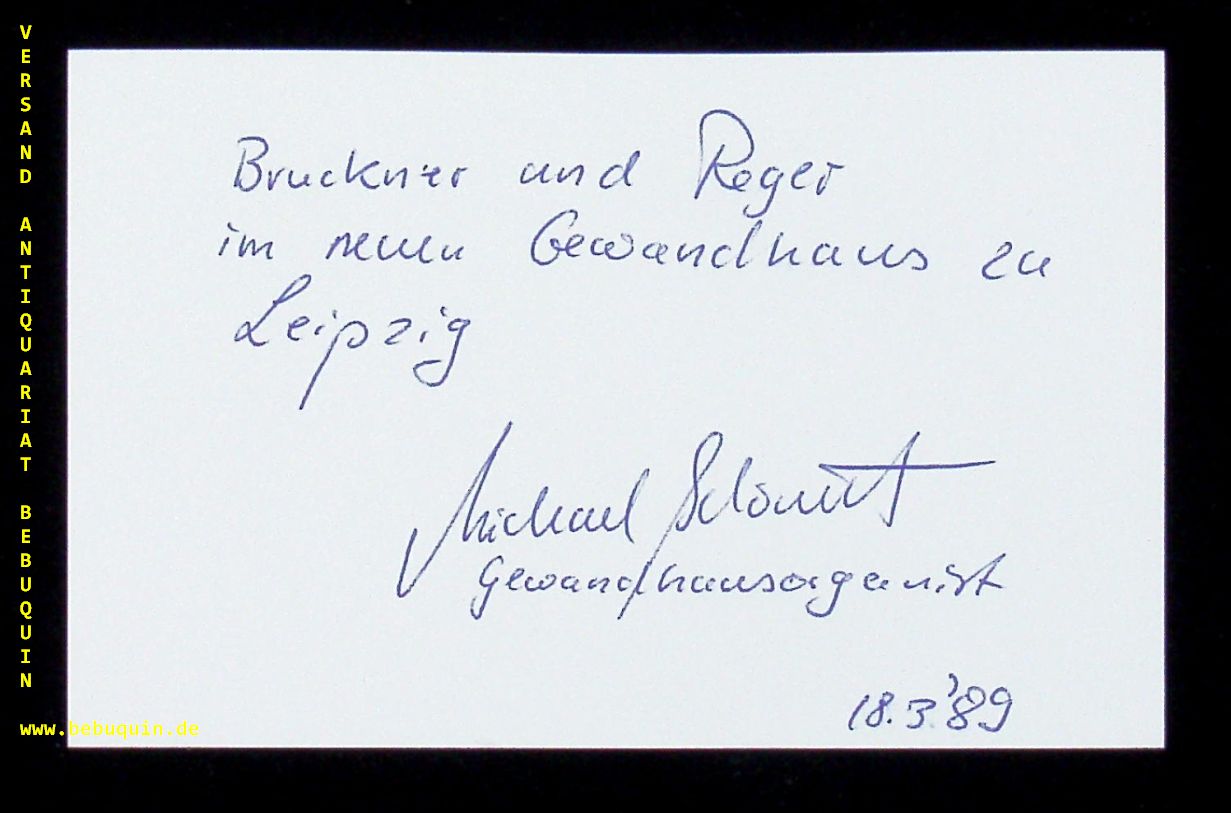 VERSAND ANTIQUARIAT BEBUQUIN
www.bebuquin.de
Bruckner und Reger
im neuen Gewandhaus zu
Leipzig
Michael Schönheit
Gewandhausorganist
18.3.'89